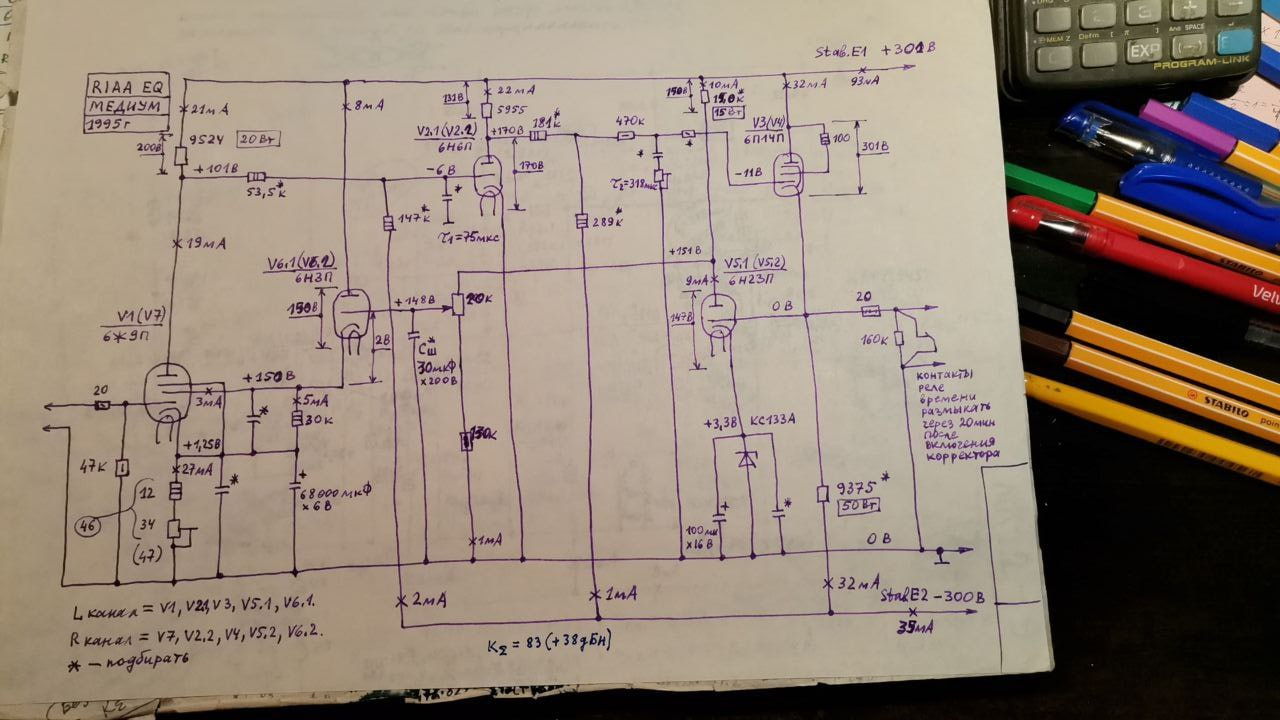 RIAA EQ
МЕДИУМ
1995г
Stab.E1 +301В
93мА
21мА
200В
9524
20Вт
+101В
53,5к*
19мА
8мА
131В
22мА
5955
V2.1(V2.2)
6Н6П
+170В
181к*
-6В
170В
τ1=75мкс
147к*
470к
*
*
τ2=318мкс
289к*
150В
10мА
15,0к*
15Вт
32мА
V3(V4)
6П14П
100
301В
-11В
+151В
V5.1(V5.2)
6Н23П
9мА
147В
0В
20
160к
контакты
реле
времени
размыкать
через 20мин
после
включения
корректора
V6.1(V6.2)
6Н3П
150В
+148В
2В
20к
Сш*
30мкФ
×200В
130к
1мА
V1(V7)
6Ж9П
20
47к
+150В
3мА
5мА
30к
*
+1,25В
27мА
12
34
(47)
46
*
+
68000мкФ
×6В
+3,3В
КС133А
+
100мк
×16В
*
9375*
50Вт
0В
32мА
Stab.E2 -300В
35мА
2мА
1мА
L канал = V1, V2.1, V3, V5.1, V6.1.
R канал = V7, V2.2, V4, V5.2, V6.2.
* — подбирать
KΣ = 83 (+38дБн)
EXP
(-)
Ans SPACE
PROGRAM-LINK
STABILO
STABILO
STABILO
Velv
point